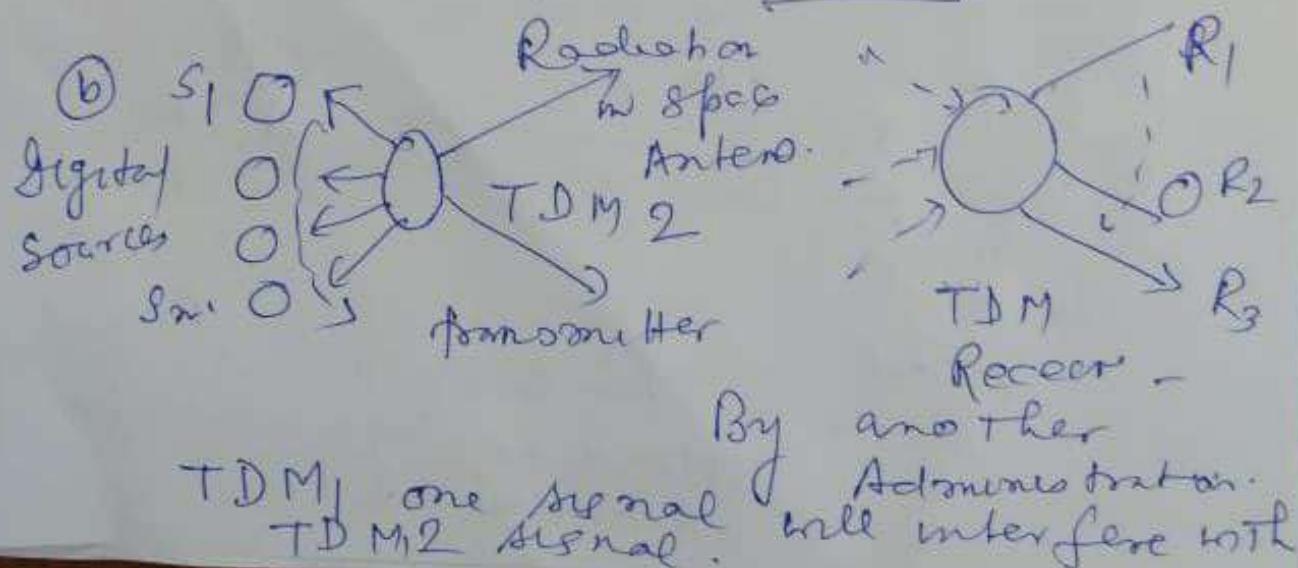 (b) S1
Digital
Sources
Sn.
Radiation
in space
Antenn.
TDM 2
transmitter
R1
R2
R3
TDM
Receer -
By another
Administration.
TDM1 one signal will interfere with
TDM,2 signal.